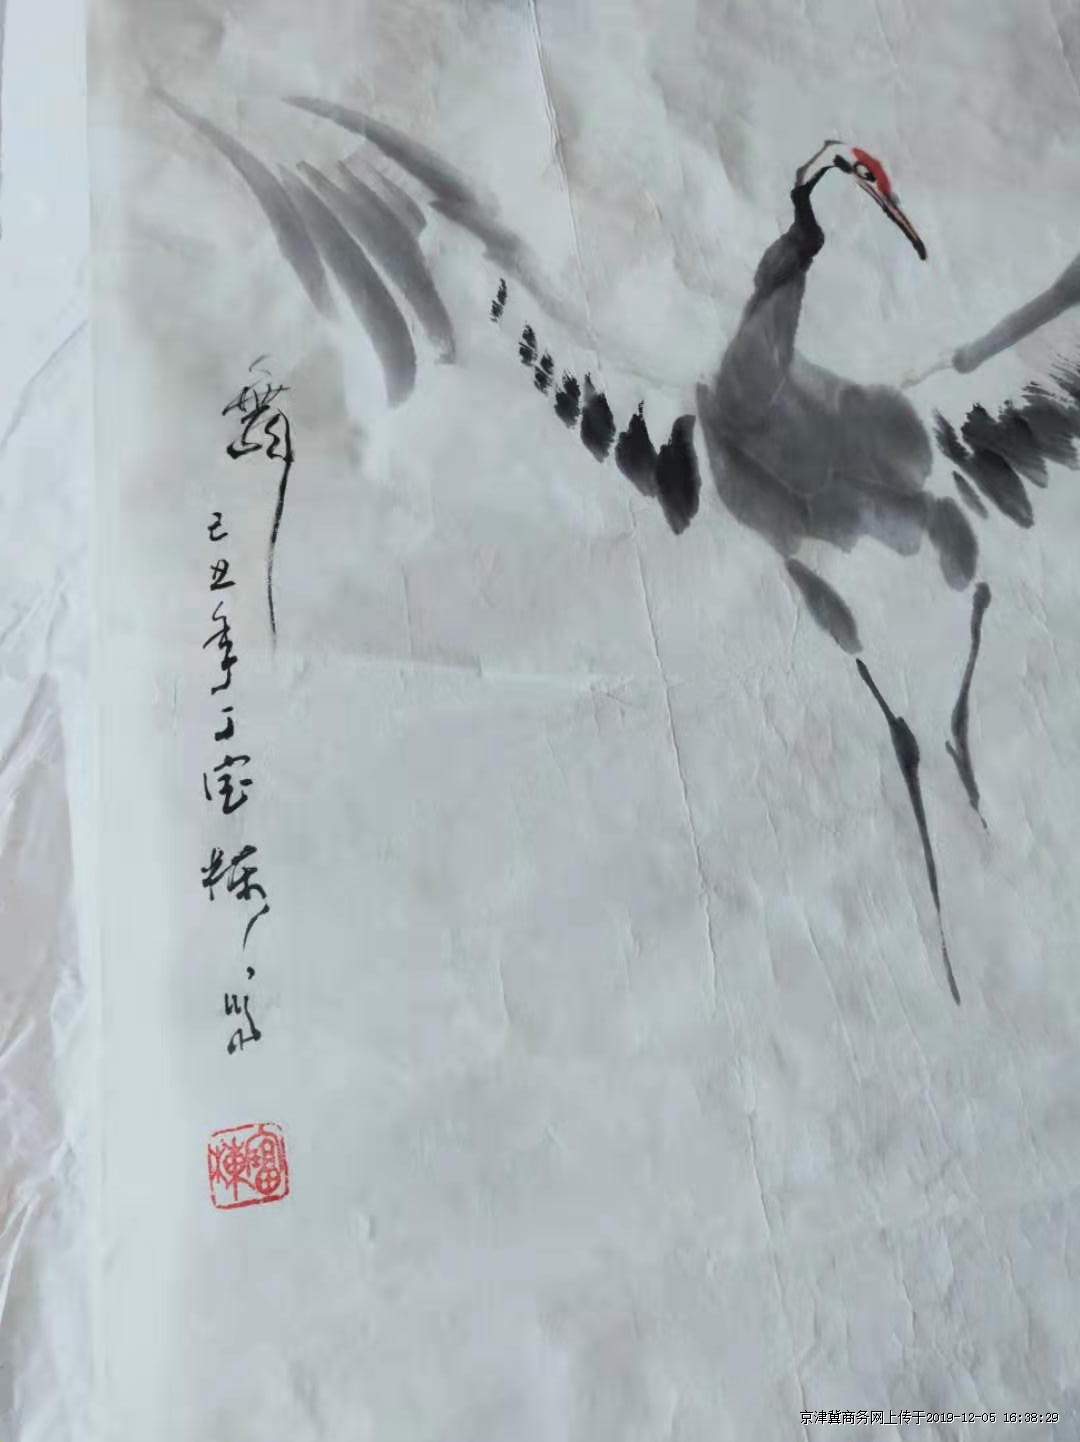 舞
己丑年丁宝栋
富栋
京津冀商务网上传于2019-12-05 16:38:29